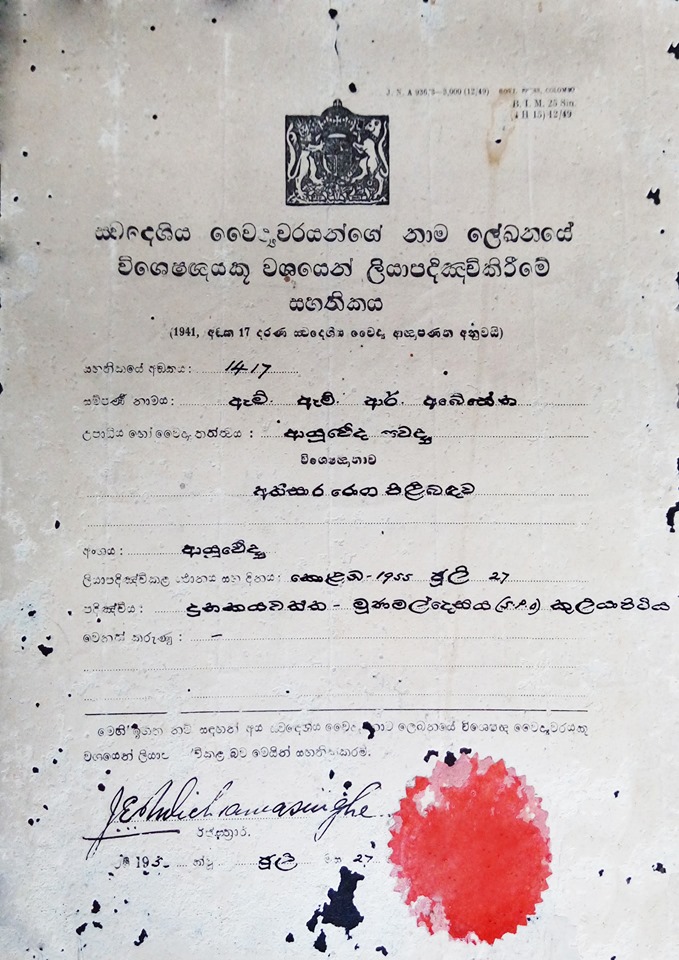 J. N. A 936,3—3,000 (12/49) GOVT. PRESS, COLOMBO
B. I. M. 25 Sin.
(4 H 15) 12/49
ස්වදේශීය වෛද්‍යවරයන්ගේ නාම ලේඛනයේ
විශෙෂඥයකු වශයෙන් ලියාපදිඤ්චිකිරීමේ
සහතිකය
(1941, අඞක 17 දරණ ස්වදේශීය වෛද්‍ය ආඥාපණත අනුවයි)
සහතිකයේ අඞකය: 1417
සම්පූර්‍ණ නාමය: ඇම්. ඇම්. ආර්. අබේසේන
උපාධිය හෝ වෛද්‍ය තත්ත්වය: ආයුර්‍වේද වෛද්‍ය
විශෙෂඥතාව
අතිසාර රොග පිළිබඳව
අංශය: ආයුර්‍වේද
ලියාපදිඤ්චිකළ ස්ථානය සහ දිනය: කොළඹ - 1955 ජූලි 27
පදිඤ්චිය: - මූණමල්දෙණිය (S.P.O) කුලියාපිටිය
වෙනත් කරුණු: —
මෙහි ඉහත නම් සඳහන් අය ස්වදේශීය වෛද්‍ය නාම ලෙඛනයේ විශෙෂඥ වෛද්‍යවරයකු
වශයෙන් බව මෙයින් සහතිකකරමි.
රෙජිස්ත්‍රාර්.
195 ක්වූ ජූලි මස 27